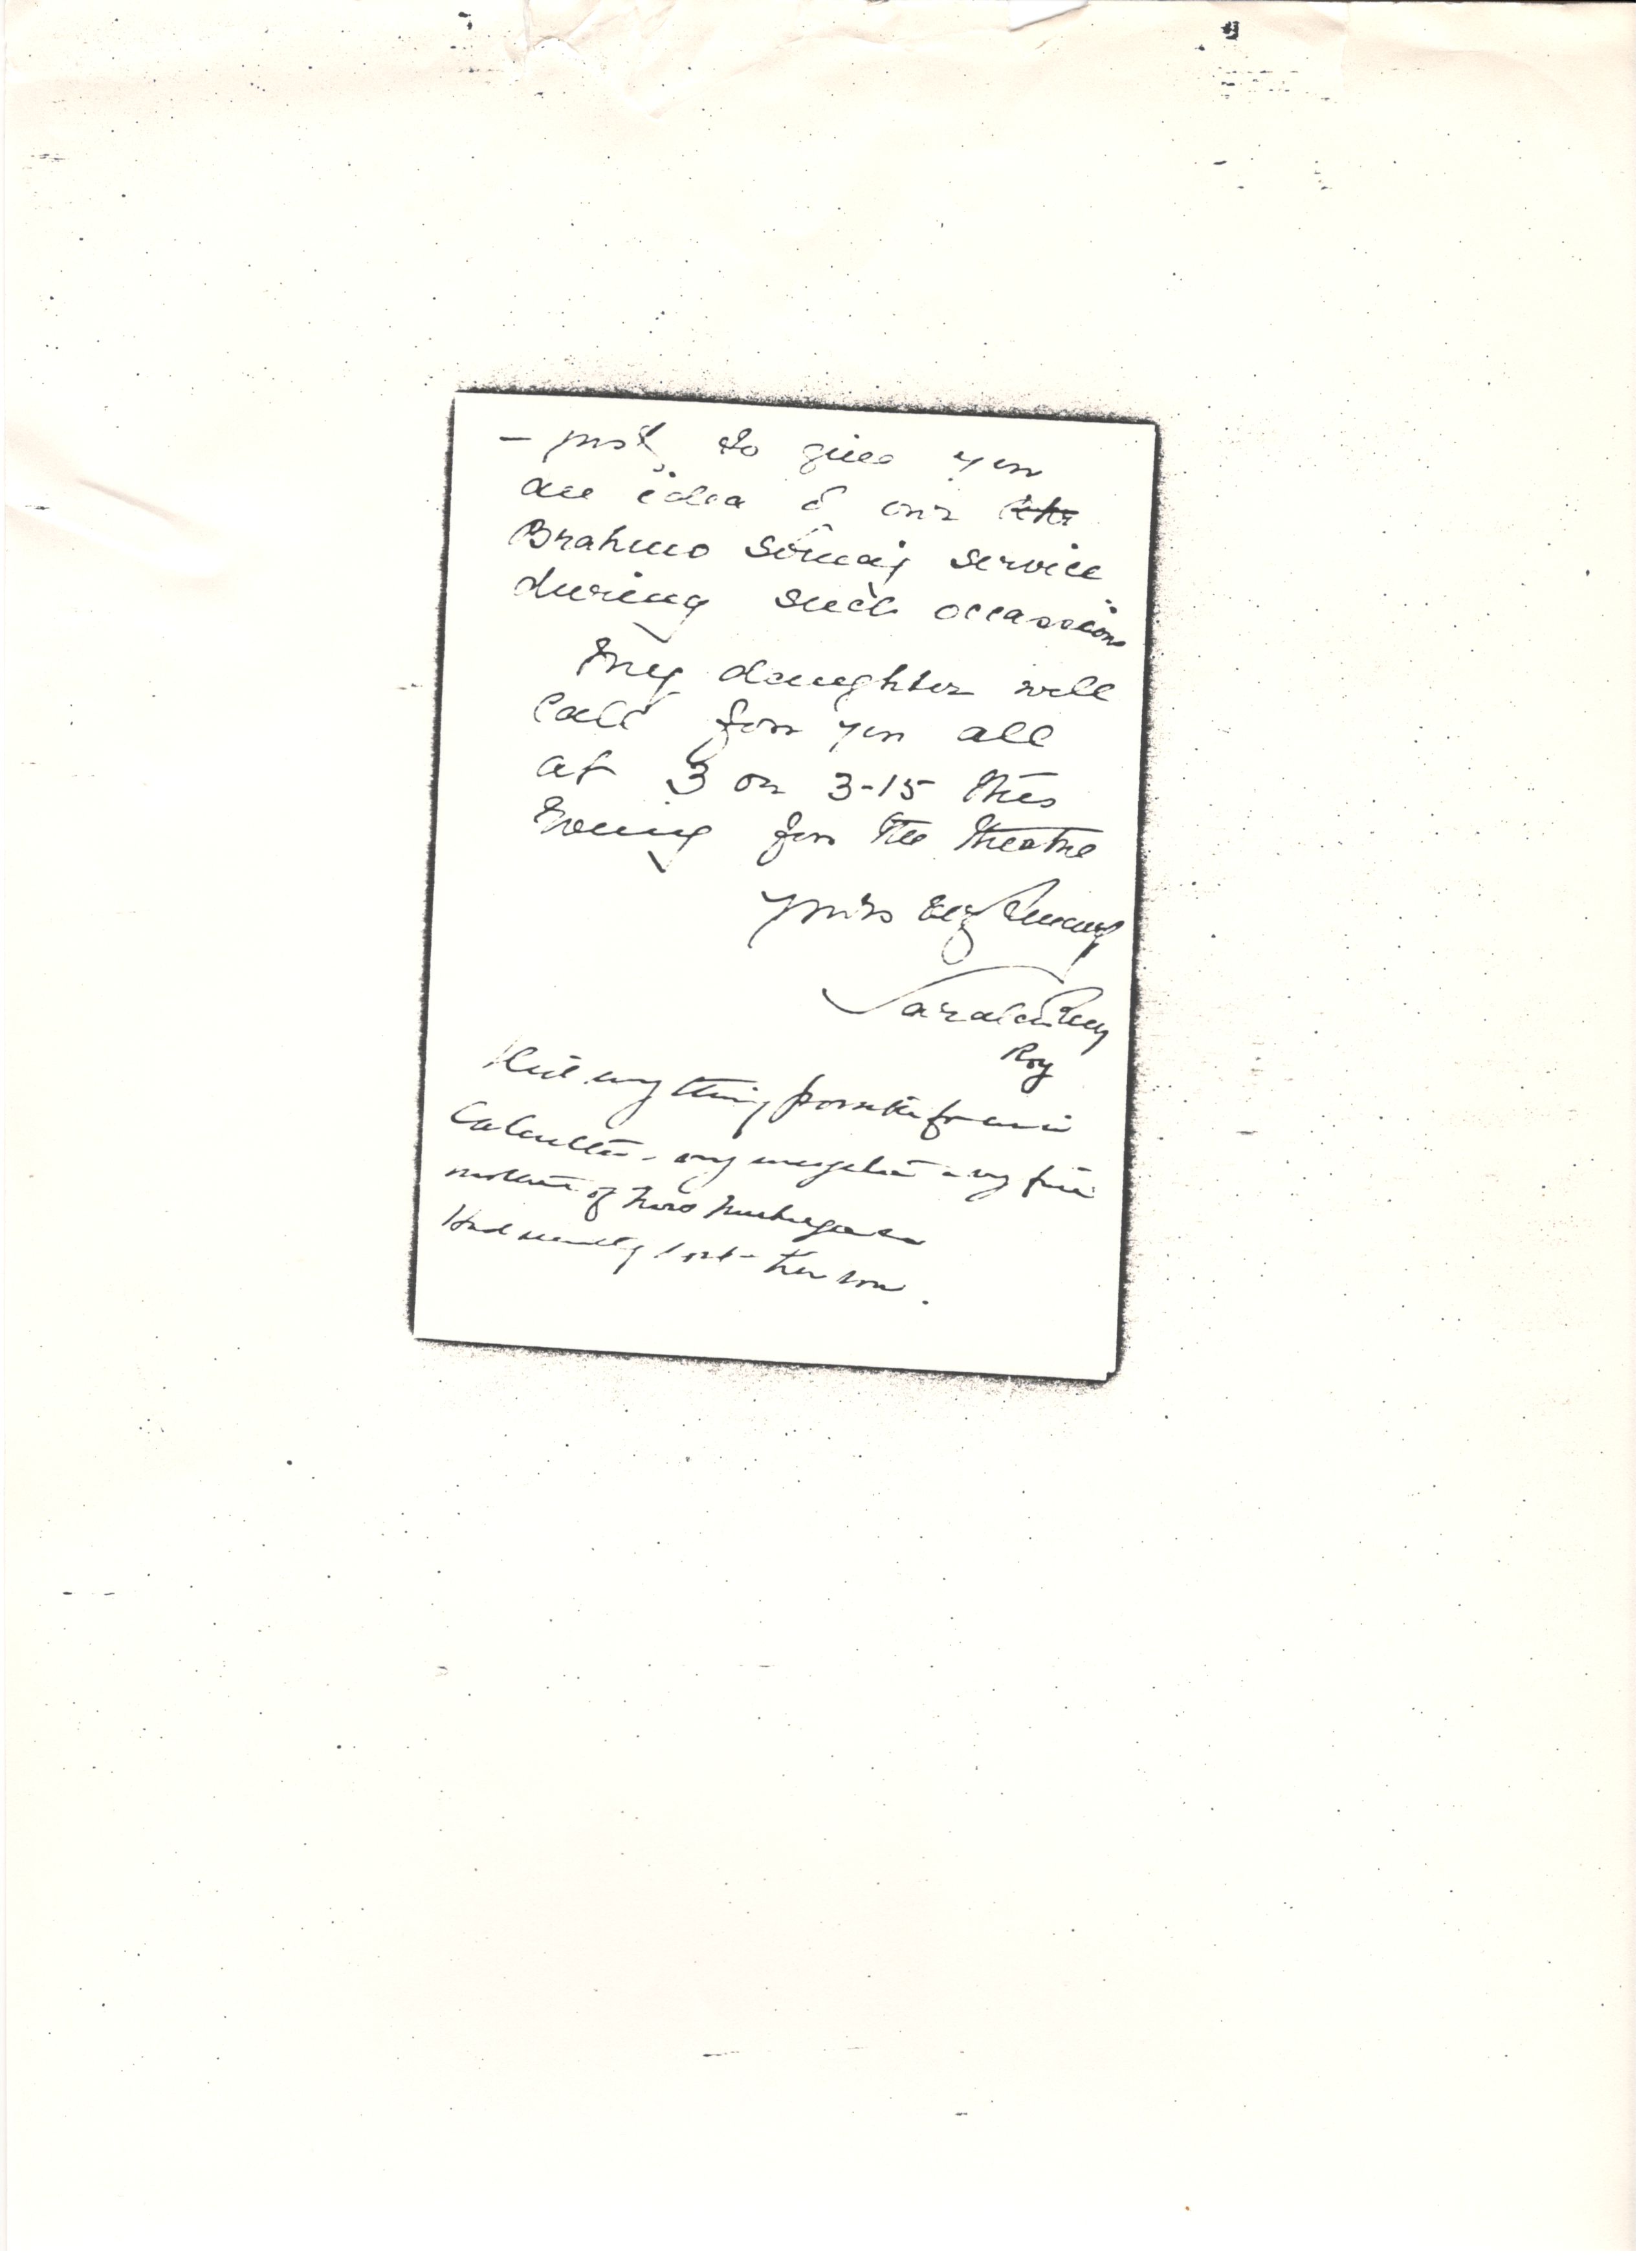 – just to give you
an idea of our
Brahmo Somaj service
during such occassions
My daughter will
call for you all
at 3 or 3-15 this
Evening for the theatre
yours very sincerely
Sarala
Roy
Did everything possible for me in
Calcutta - my
mother of two
Had recently lost her son.